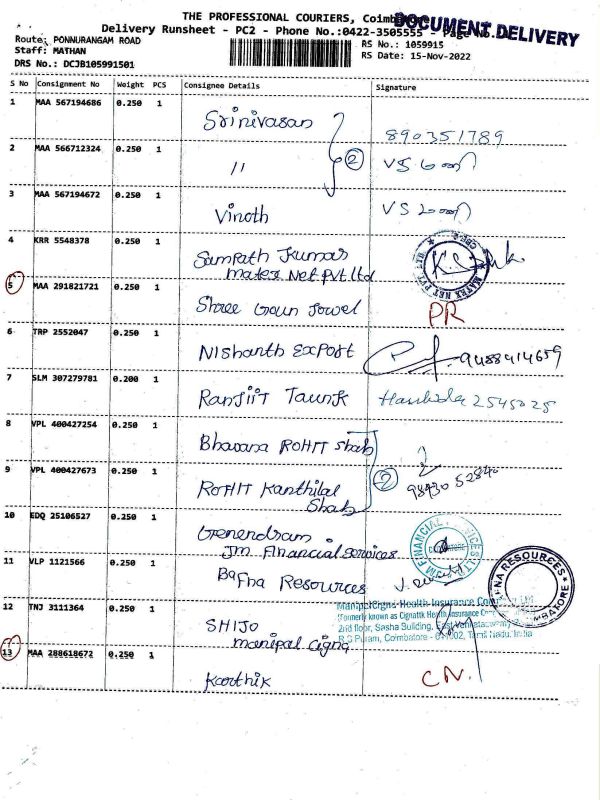 THE PROFESSIONAL COURIERS, Coimbatore
DOCUMENT DELIVERY
Delivery Runsheet - PC2 - Phone No.:0422-3505555 - Page No.
Route: PONNURANGAM ROAD
RS No.: 1059915
Staff: MATHAN
RS Date: 15-Nov-2022
DRS No.: DCJB105991501
S No Consignment No Weight PCS Consignee Details Signature
1 MAA 567194686 0.250 1 Srinivasan 890351789
2 MAA 566712324 0.250 1 11 2 VS
3 MAA 567194672 0.250 1 Vinoth VS
4 KRR 5548378 0.250 1 Sampath Kumar
Matex Net Pvt ltd
MATEX NET PVT
5 MAA 291821721 0.250 1 Shree Jowel PR
6 TRP 2552047 0.250 1 Nishanth Export 9488414659
7 SLM 307279781 0.200 1 Ranjiit Taunk 2545025
8 VPL 400427254 0.250 1 Bhavana ROHIT Shah
9 VPL 400427673 0.250 1 ROHIT Kanthilal 2
Shah
10 EDQ 25106527 0.250 1
JM Financial Services
JM FINANCIAL SERVICES LTD
11 VLP 1121566 0.250 1 Bafna Resources
BAFNA RESOURCES
COIMBATORE
12 TNJ 3111364 0.250 1 SHIJO
Manipal Cigna
ManipalCigna Health Insurance
(Formerly known as Cignattk Health Insurance
2nd floor, Sasha Building,
R.S Puram, Coimbatore - Tamil Nadu, India
13 MAA 288618672 0.250 1 Karthik C.N.